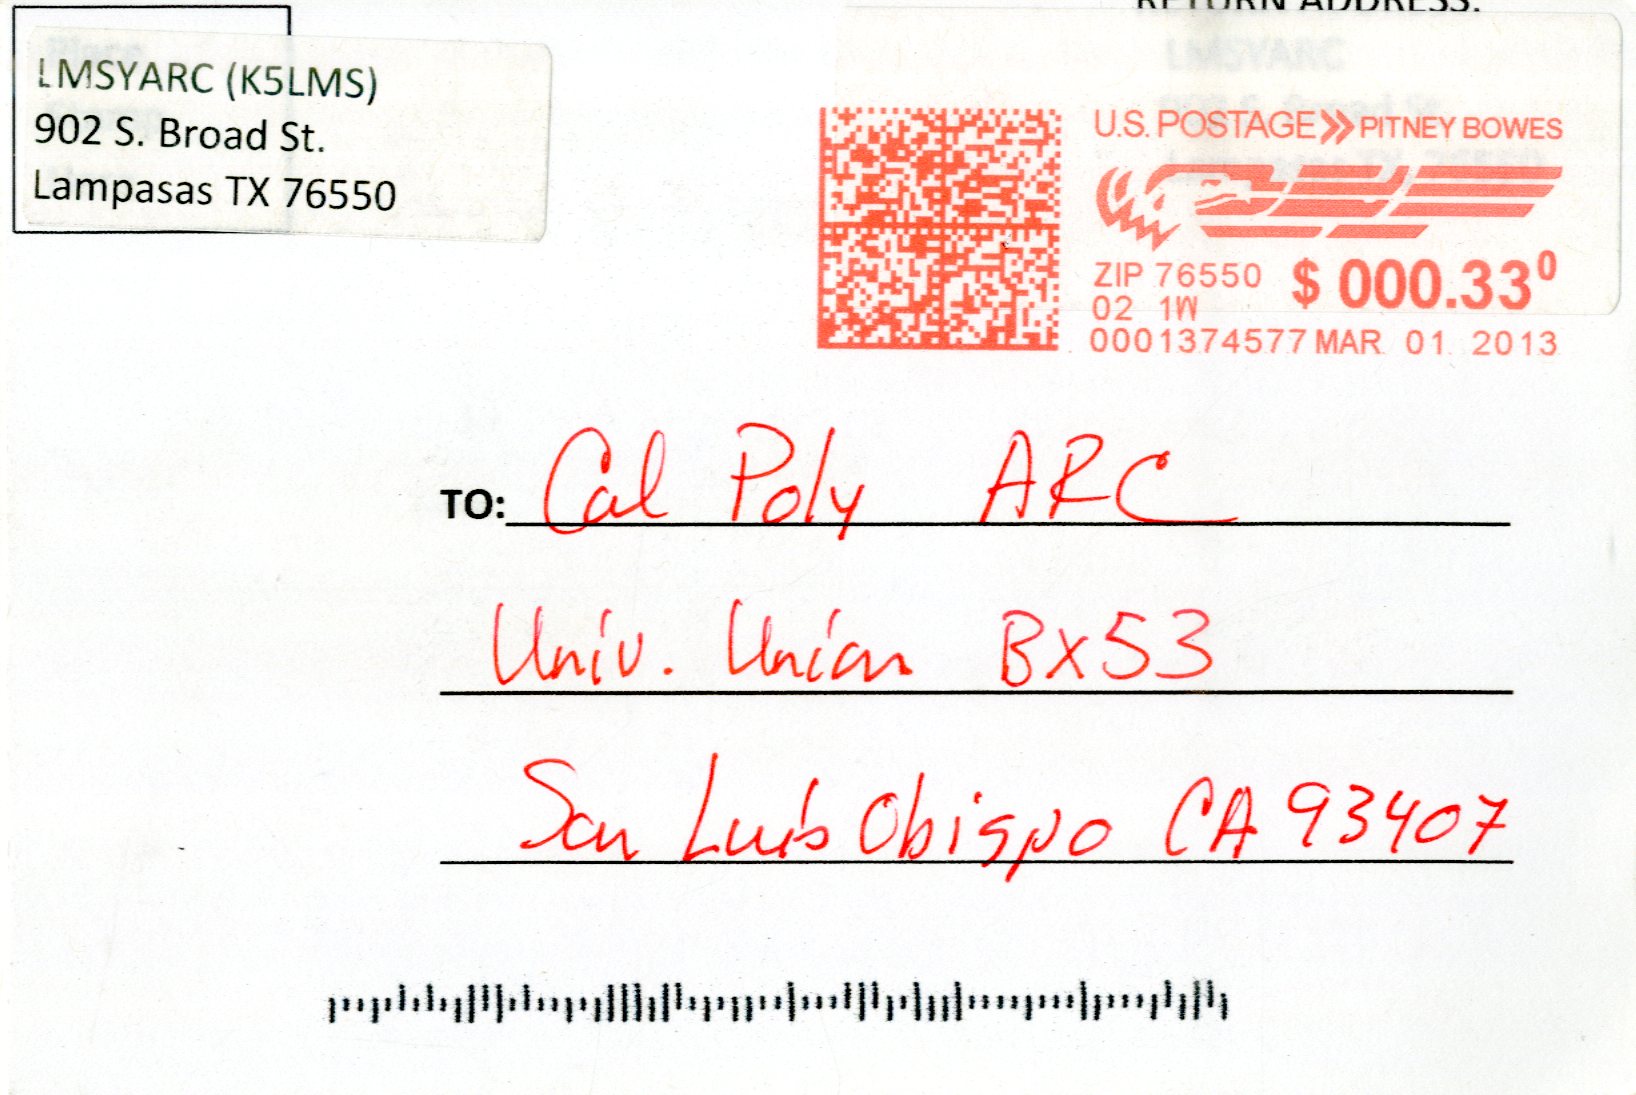 RETURN ADDRESS:
LMSYARC (K5LMS)
902 S. Broad St.
Lampasas TX 76550
LMSYARC
U.S. POSTAGE PITNEY BOWES
ZIP 76550 $ 000.33⁰
02 1W
0001374577 MAR 01 2013
TO: Cal Poly ARC
Univ. Union Bx53
San Luis Obispo CA 93407